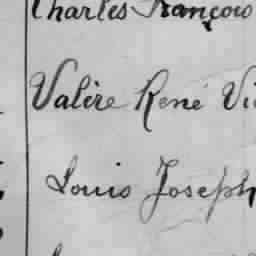 Charles François
Valère René
Louis Joseph